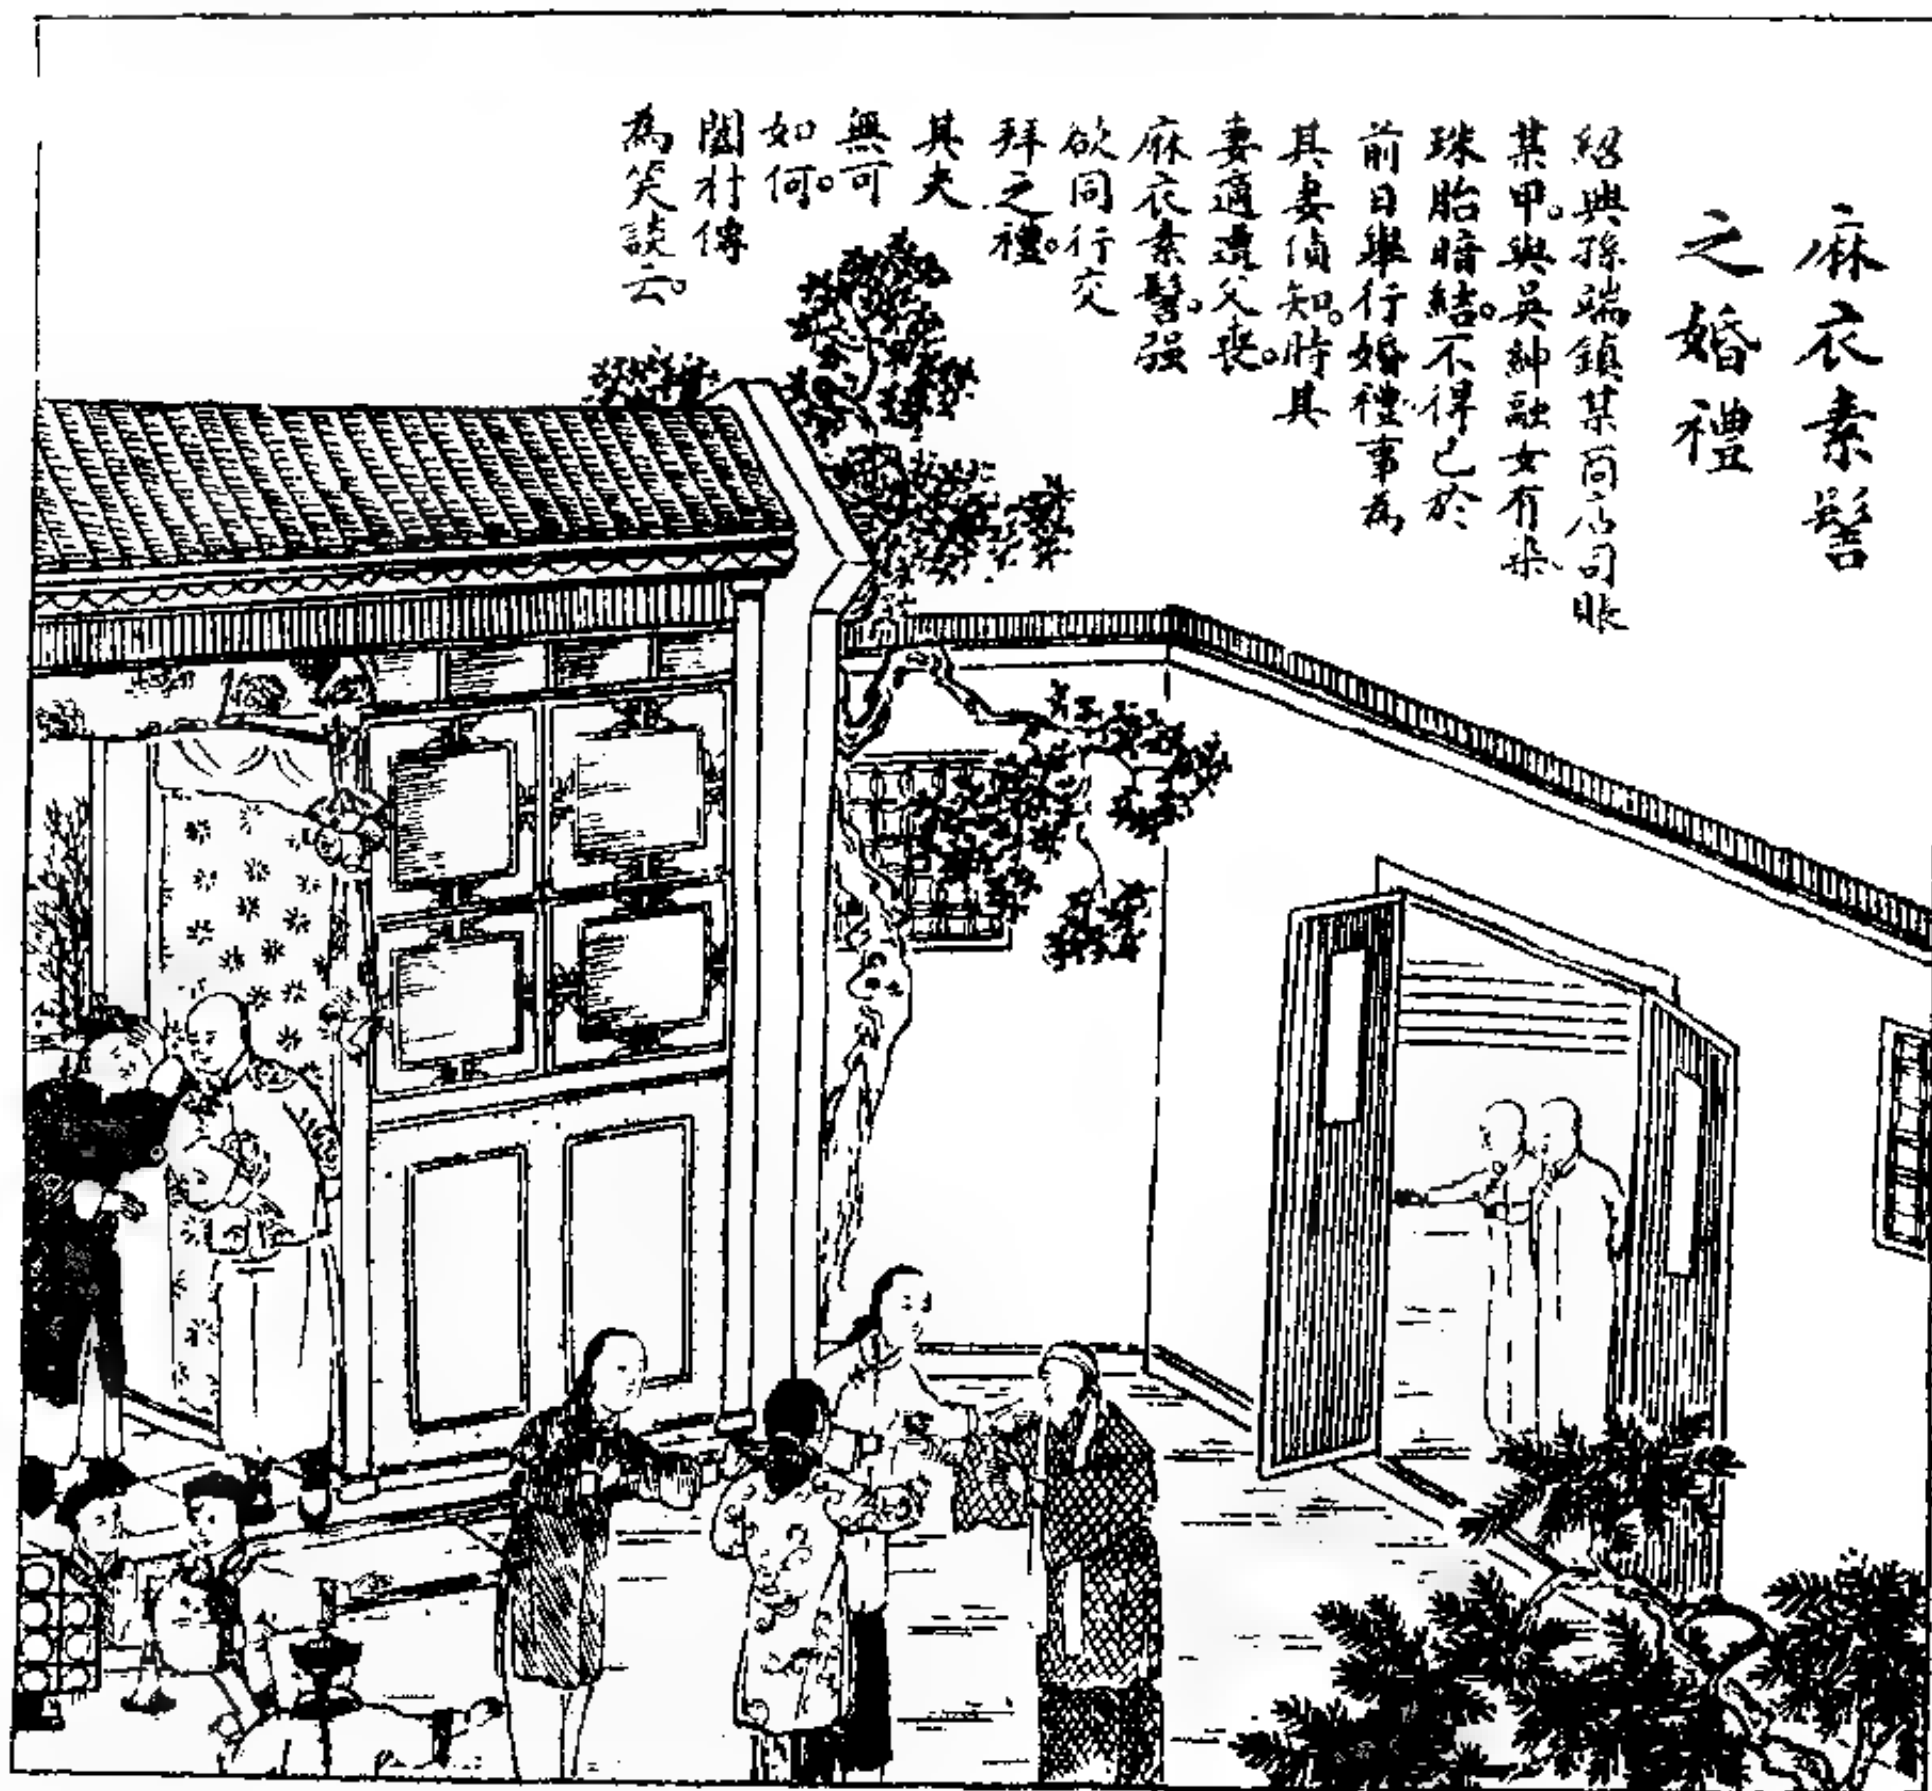 麻衣素髻
之婚禮
紹興孫端鎮某商店司賬
某甲。與吳紳融女有染
珠胎暗結。不得已於
前日舉行婚禮。事為
其妻偵知。時其
妻適遭父喪。
麻衣素髻。强
欲同行交
拜之禮。
其夫
無可
如何。
闔村傳
為笑談云。